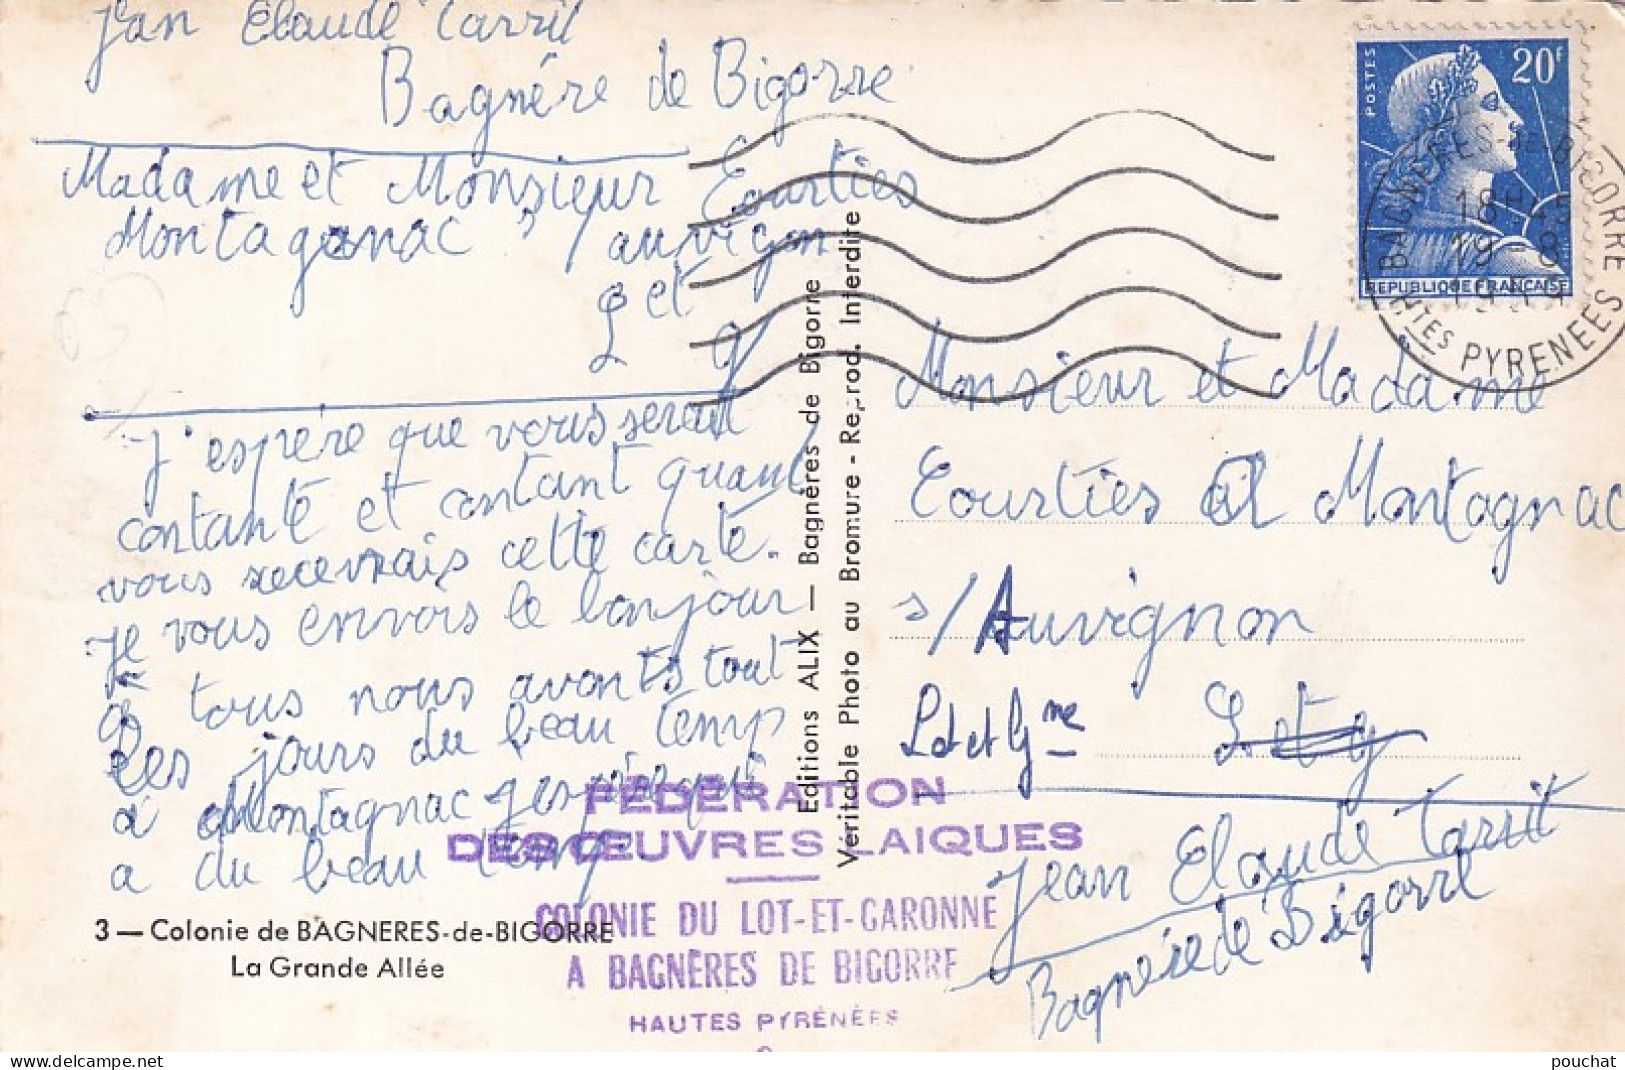 Jean Claude Tarrit
Bagnére de Bigorre
Madame et Monsieur Courties
Montagnac s/auvignon
L et
g
J'espére que vous serait
contante et contant quant
vous recevrais cette carte.
Je vous envois le bonjour
à tous nous avonts tout
les jours du beau temp
à Montagnac J'espére qui
a du beau temp
3 — Colonie de BAGNERES-de-BIGORRE
La Grande Allée
Editions ALIX — Bagnères de Bigorre
Véritable Photo au Bromure - Reprod. Interdite
POSTES
20F
REPUBLIQUE FRANÇAISE
BAGNERES-DE-BIGORRE
18H45
19 - 8
HTES PYRENEES
Monsieur et Madame
Courties à Montagnac
s/Auvignon
Lot et Gne
L et g
Jean Claude Tarrit
Bagnére de Bigorre
FÉDÉRATION
DES ŒUVRES LAIQUES
COLONIE DU LOT-ET-GARONNE
A BAGNÈRES DE BIGORRE
HAUTES PYRÉNÉES
delcampe.net
pouchat